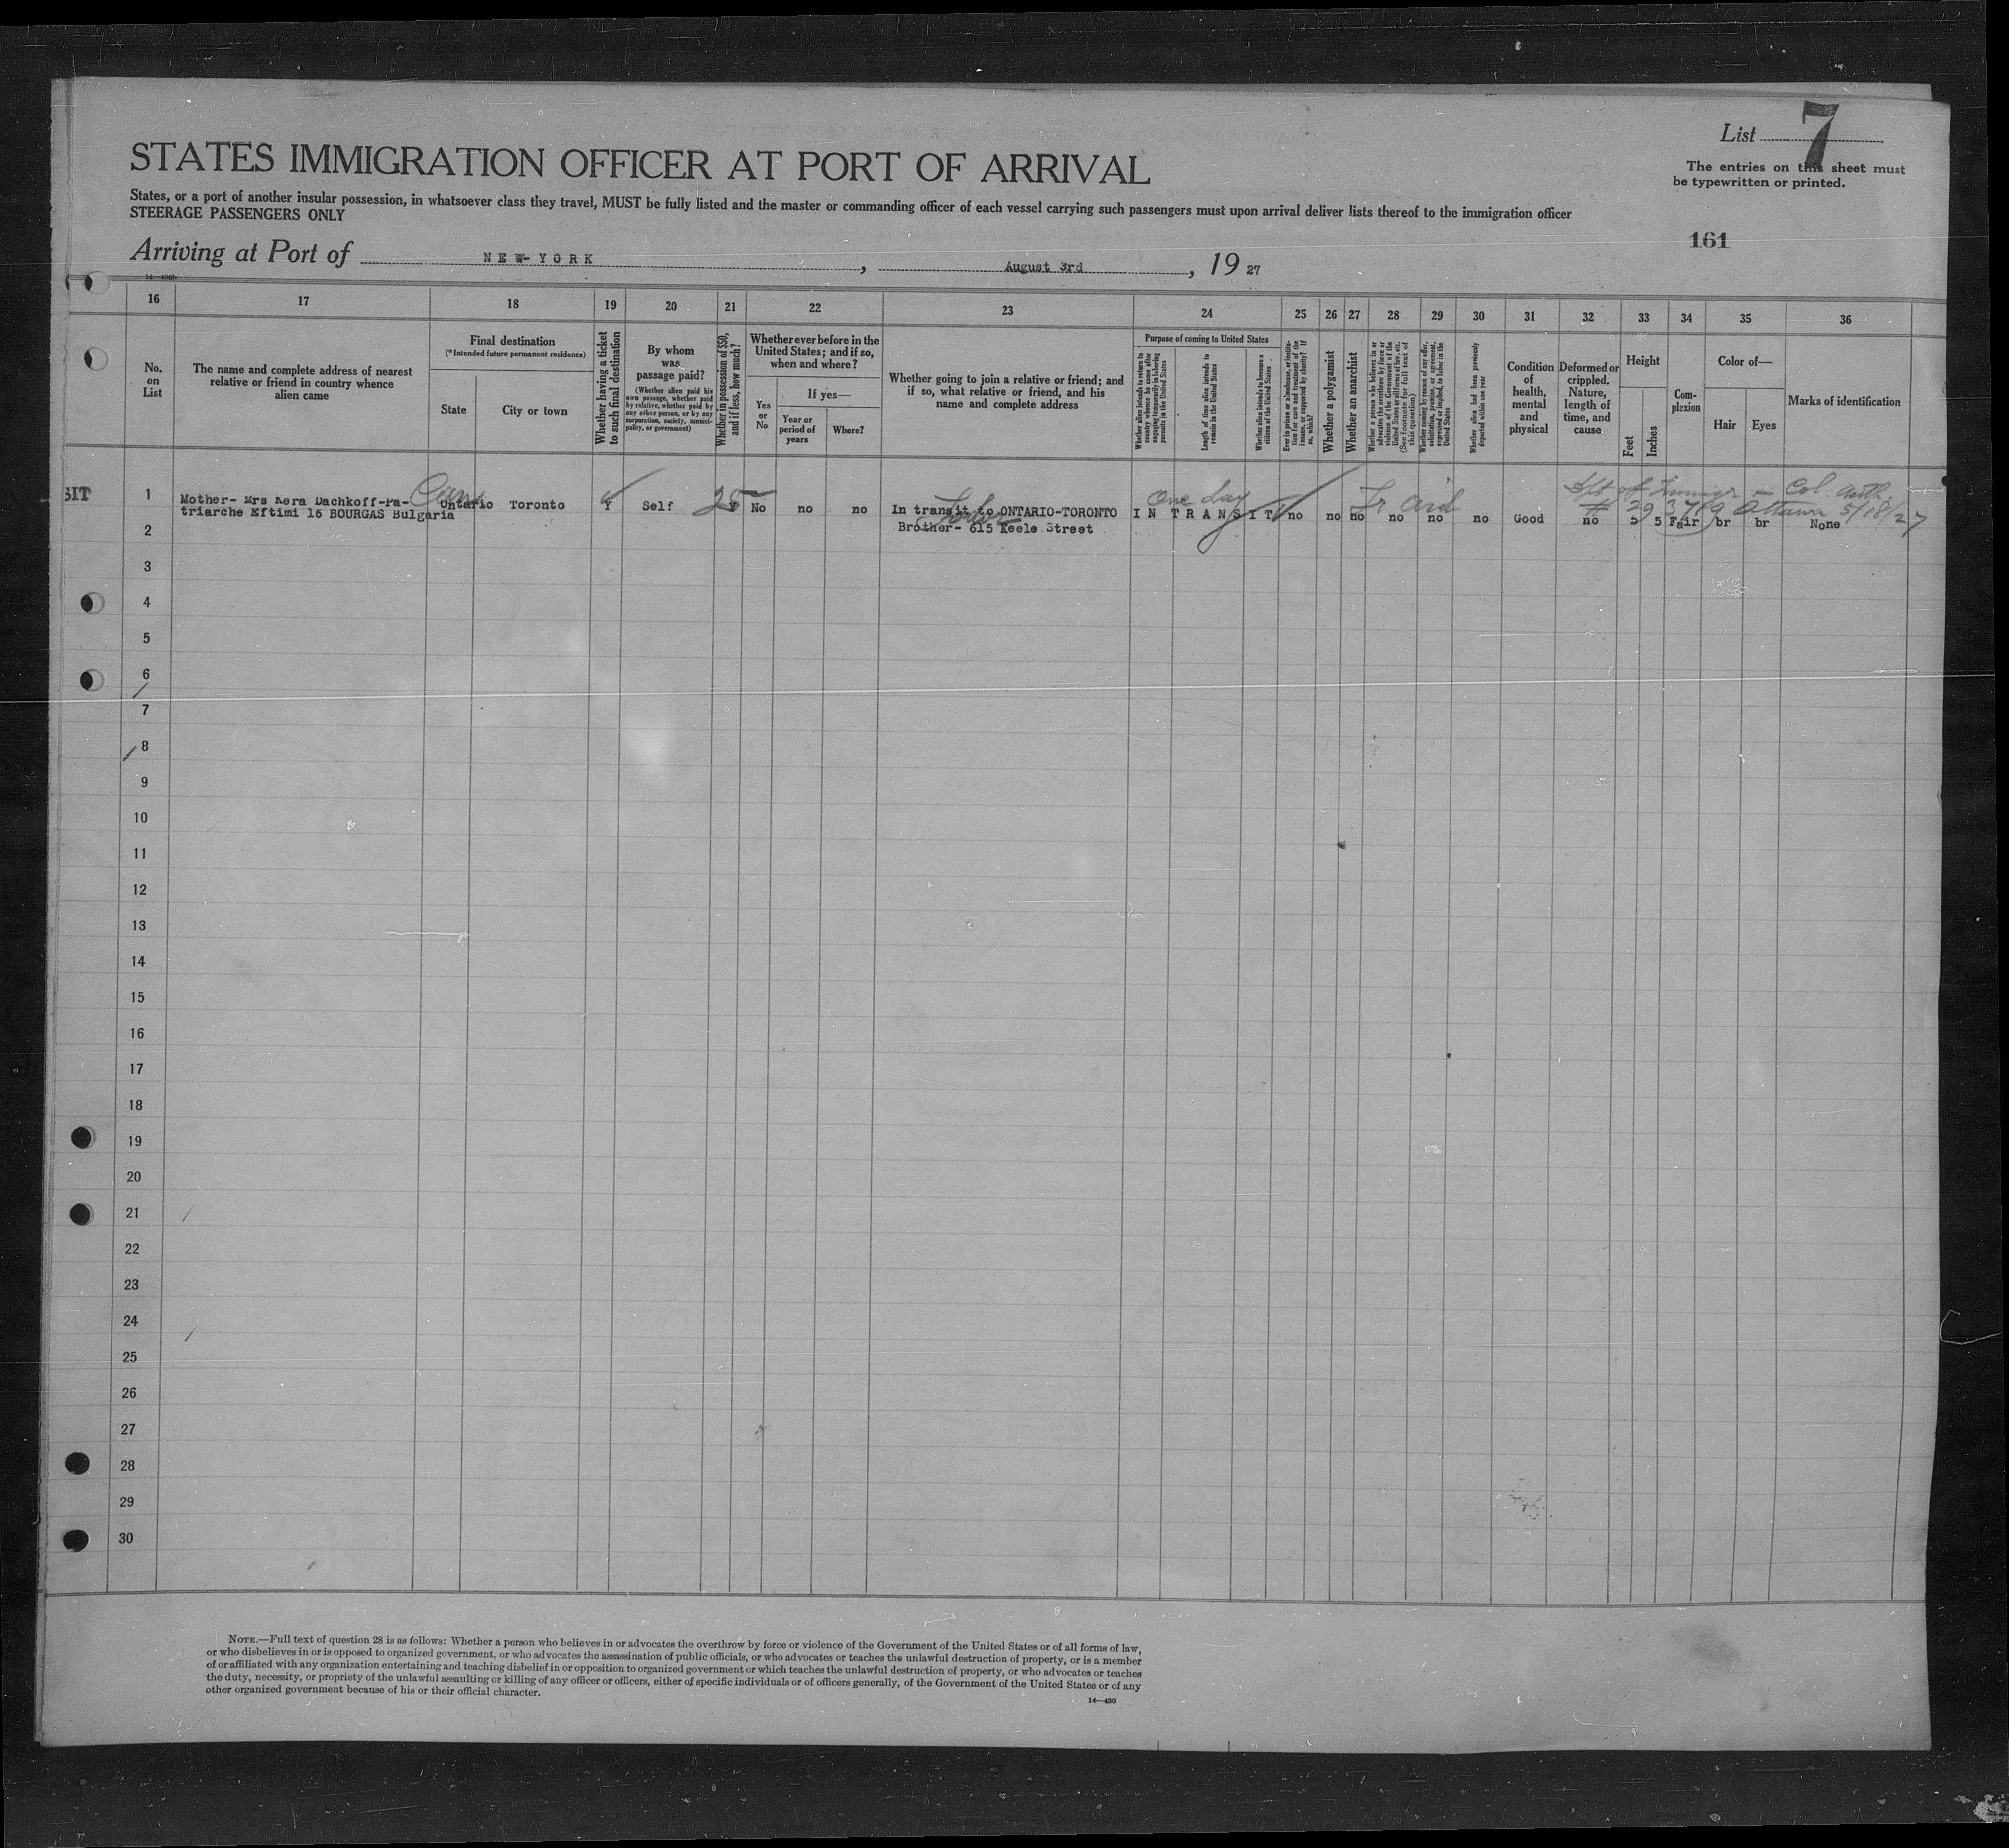 List 7
The entries on this sheet must
be typewritten or printed.
STATES IMMIGRATION OFFICER AT PORT OF ARRIVAL
States, or a port of another insular possession, in whatsoever class they travel, MUST be fully listed and the master or commanding officer of each vessel carrying such passengers must upon arrival deliver lists thereof to the immigration officer
STEERAGE PASSENGERS ONLY
161
Arriving at Port of NEW-YORK, August 3rd, 19 27
16 17 18 19 20 21 22 23 24 25 26 27 28 29 30 31 32 33 34 35 36
No.
on
List
The name and complete address of nearest
relative or friend in country whence
alien came
Final destination
(*Intended future permanent residence)
State
City or town
Whether having a ticket
to such final destination
By whom
was
passage paid?
(Whether alien paid his
own passage, whether paid
by relative, whether paid by
any other person, or by any
corporation, society, munici-
pality, or government)
Whether in possession of $50,
and if less, how much?
Whether ever before in the
United States; and if so,
when and where?
Yes
or
No
If yes—
Year or
period of
years
Where?
Whether going to join a relative or friend; and
if so, what relative or friend, and his
name and complete address
Purpose of coming to United States
Whether alien intends to return to
country whence he came after
engaging temporarily in laboring
pursuits in the United States
Length of time alien intends to
remain in the United States
Whether alien intends to become a
citizen of the United States
Ever in prison or almshouse, or institu-
tion for care and treatment of the
insane, or supported by charity? If
so, which?
Whether a polygamist
Whether an anarchist
Whether a person who believes in or
advocates the overthrow by force or
violence of the Government of the
United States or all forms of law, etc.
(See footnote for full text of
this question)
Whether coming by reason of any offer,
solicitation, promise, or agreement,
expressed or implied, to labor in the
United States
Whether alien had been previously
deported within one year
Condition
of
health,
mental
and
physical
Deformed or
crippled.
Nature,
length of
time, and
cause
Height
Feet
Inches
Com-
plexion
Color of—
Hair
Eyes
Marks of identification
SIT
1
Mother- Mrs Kera Dachkoff-Pa-
triarche Eftimi 16 BOURGAS Bulgaria
Can
Ontario Toronto Y Self 25 No no no
In transit to ONTARIO-TORONTO
Brother- 615 Keele Street
One day
IN TRANSIT no no no no no no Good no 5 5 Fair br br None
# 293719 Ottawa 5/18/27
2
3
4
5
6
7
8
9
10
11
12
13
14
15
16
17
18
19
20
21
22
23
24
25
26
27
28
29
30
NOTE.—Full text of question 28 is as follows: Whether a person who believes in or advocates the overthrow by force or violence of the Government of the United States or of all forms of law,
or who disbelieves in or is opposed to organized government, or who advocates the assassination of public officials, or who advocates or teaches the unlawful destruction of property, or is a member
of or affiliated with any organization entertaining and teaching disbelief in or opposition to organized government or which teaches the unlawful destruction of property, or who advocates or teaches
the duty, necessity, or propriety of the unlawful assaulting or killing of any officer or officers, either of specific individuals or of officers generally, of the Government of the United States or of any
other organized government because of his or their official character.
14—430